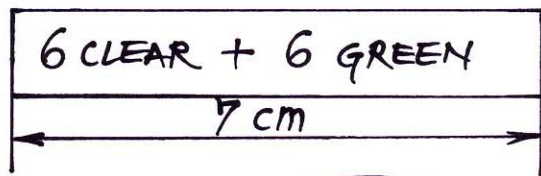 6 CLEAR + 6 GREEN
7 cm